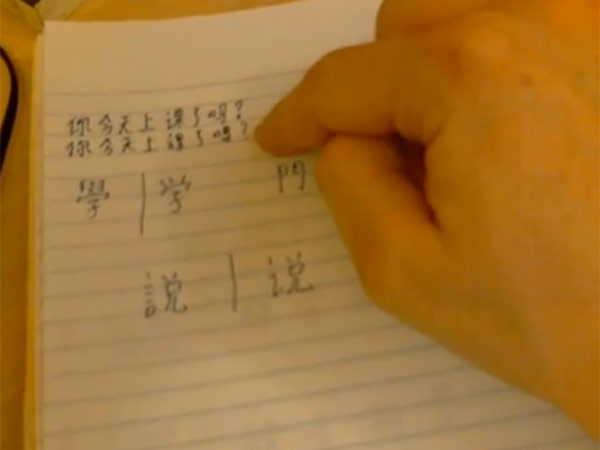 你今天上课了吗?
你今天上課了嗎?
學|学 門
說|说